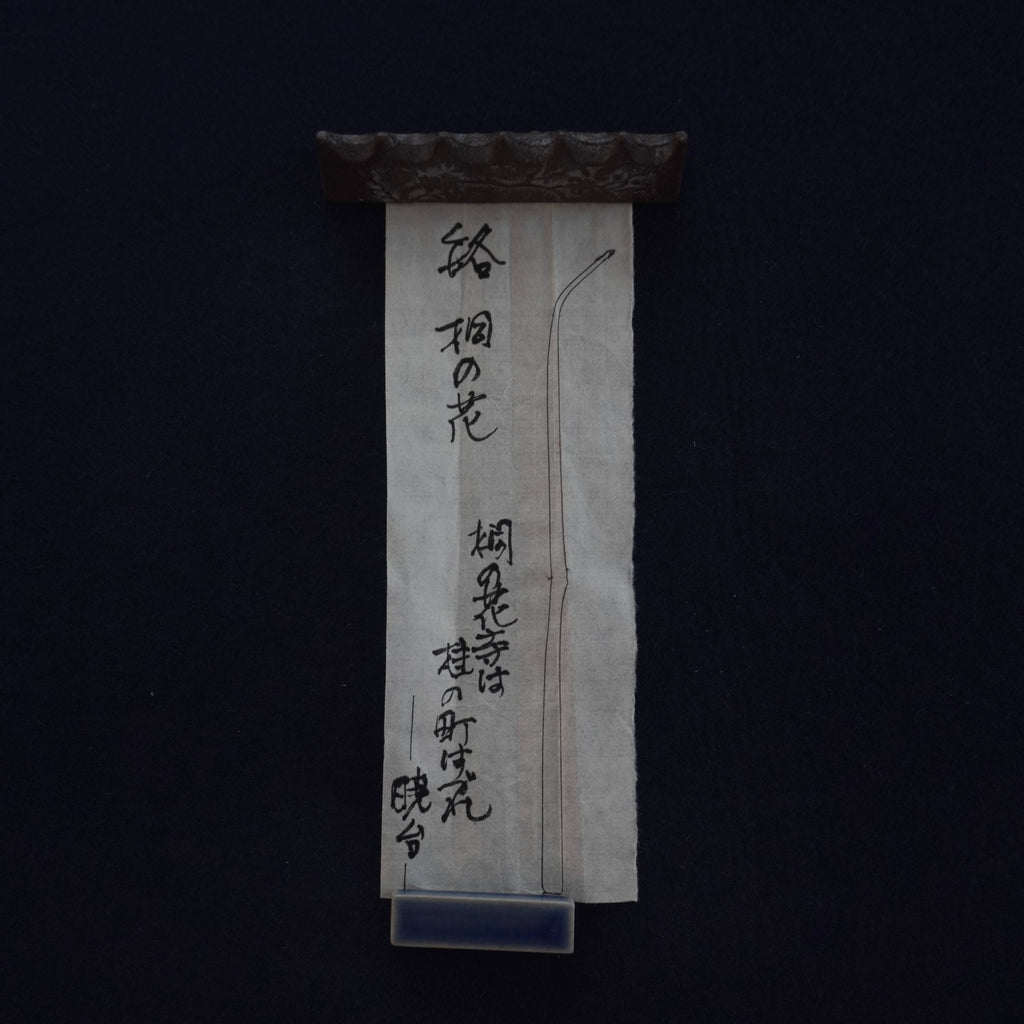 銘 桐の花
桐の花寺は
桂の町はづれ
暁台